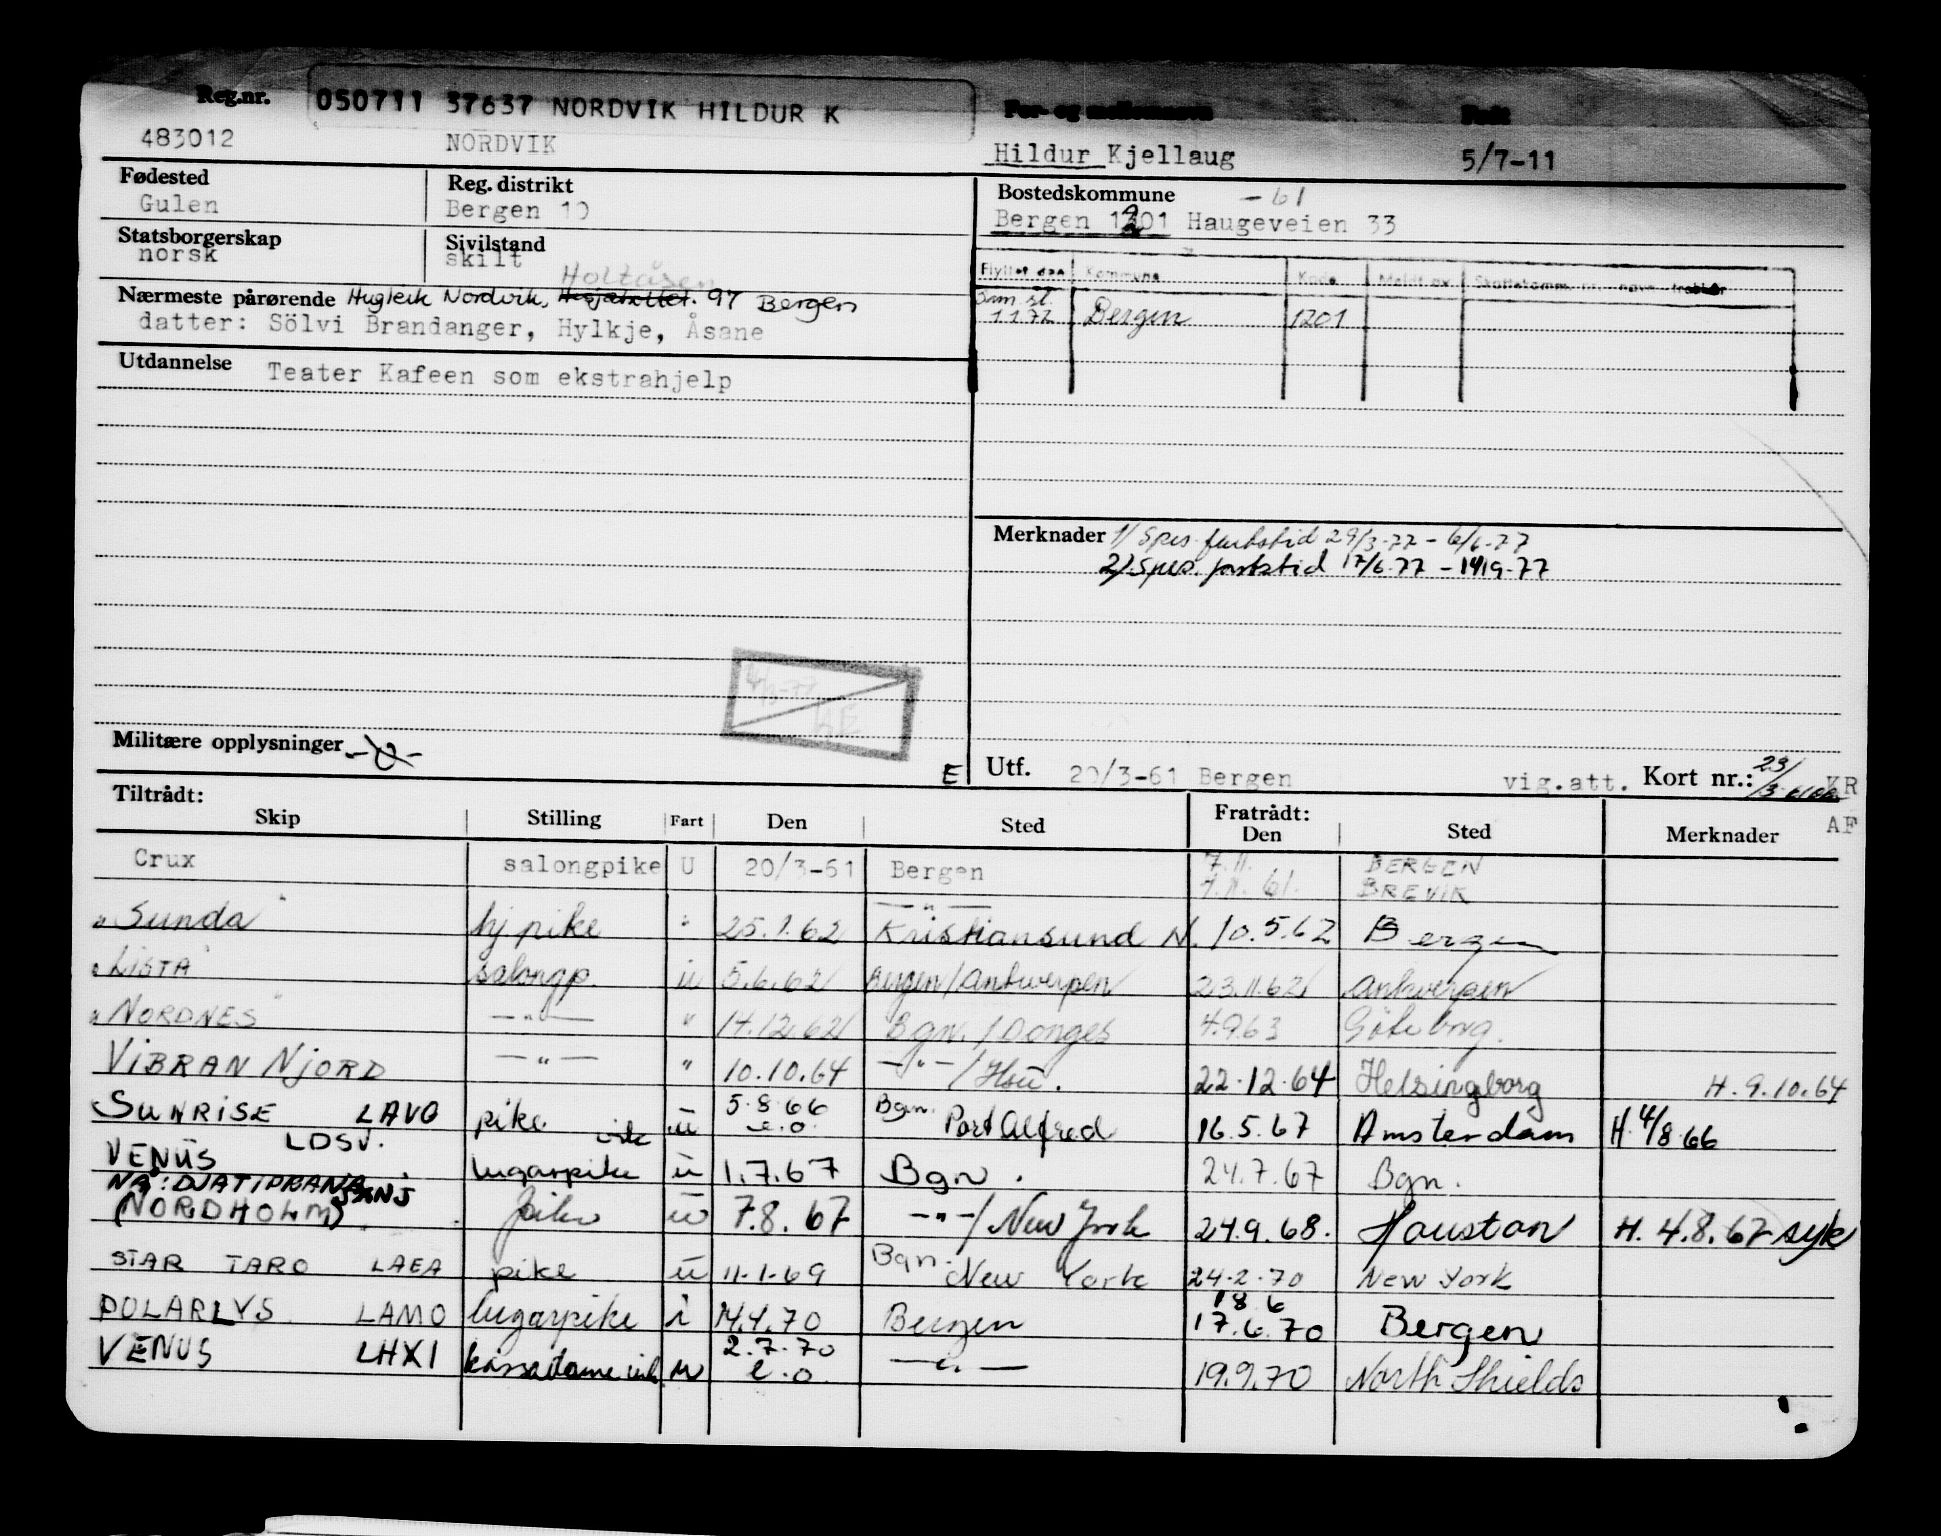 Reg.nr. 050711 37637 NORDVIK HILDUR K For- og mellomnavn Født
483012 NORDVIK Hildur Kjellaug 5/7-11
Fødested Reg. distrikt Bostedskommune -61
Gulen Bergen 10 Bergen 1301 Haugeveien 33
Statsborgerskap Sivilstand
norsk skilt
Flyttet den Kommune Kode Meldt av
Holtåsen
Nærmeste pårørende Hugleik Nordvik, 97 Bergen
datter: Sölvi Brandanger, Hylkje, Åsane
1.1.72 Bergen 1201
Utdannelse Teater Kafeen som ekstrahjelp
Merknader 1/ Spes. fartstid 29/3-77 - 6/6-77
2/. Spes. fartstid 17/6-77 - 14/9-77
4/3-77
Militære opplysninger -0-
E Utf. 20/3-61 Bergen vig.att. Kort nr.: 23/3-61 KR
AF
Tiltrådt: Fratrådt:
Skip Stilling Fart Den Sted Den Sted Merknader
Crux salongpike U 20/3-61 Bergen 7.11. BERGEN
7.11.61. BREVIK
"Sunda" hj pike " 25.1.62 Kristiansund N. 10.5.62 Bergen
"LISTA" salongp. u 5.6.62 Bergen/Antwerpen 23.11.62 Antwerpen
"NORDNES" -"- " 14.12.62 Bgn./Donges 4.9.63 Göteborg.
VIBRAN NJORD -"- " 10.10.64 -"-/ 22.12.64 Helsingborg H. 9.10.64
SUNRISE LAVO pike u 5.8.66 e.o. Bgn. Port Alfred 16.5.67 Amsterdam H. 4/8.66
VENUS LDSV. lugarpike vik u 1.7.67 Bgn. 24.7.67 Bgn.
NÅ: DJATIPRANA
(NORDHOLM) pike u 7.8.67 -"-/ New York 24.9.68. Houston H. 4.8.67 syk
STAR TARO LAEA pike u 11.1.69 Bgn. New York 24.2.70 New York
POLARLYS LAMO lugarpike i 14.4.70 Bergen 18.6 17.6.70 Bergen
VENUS LHXI kassadame vik u 2.7.70 e.o. -"- 19.9.70 North Shields